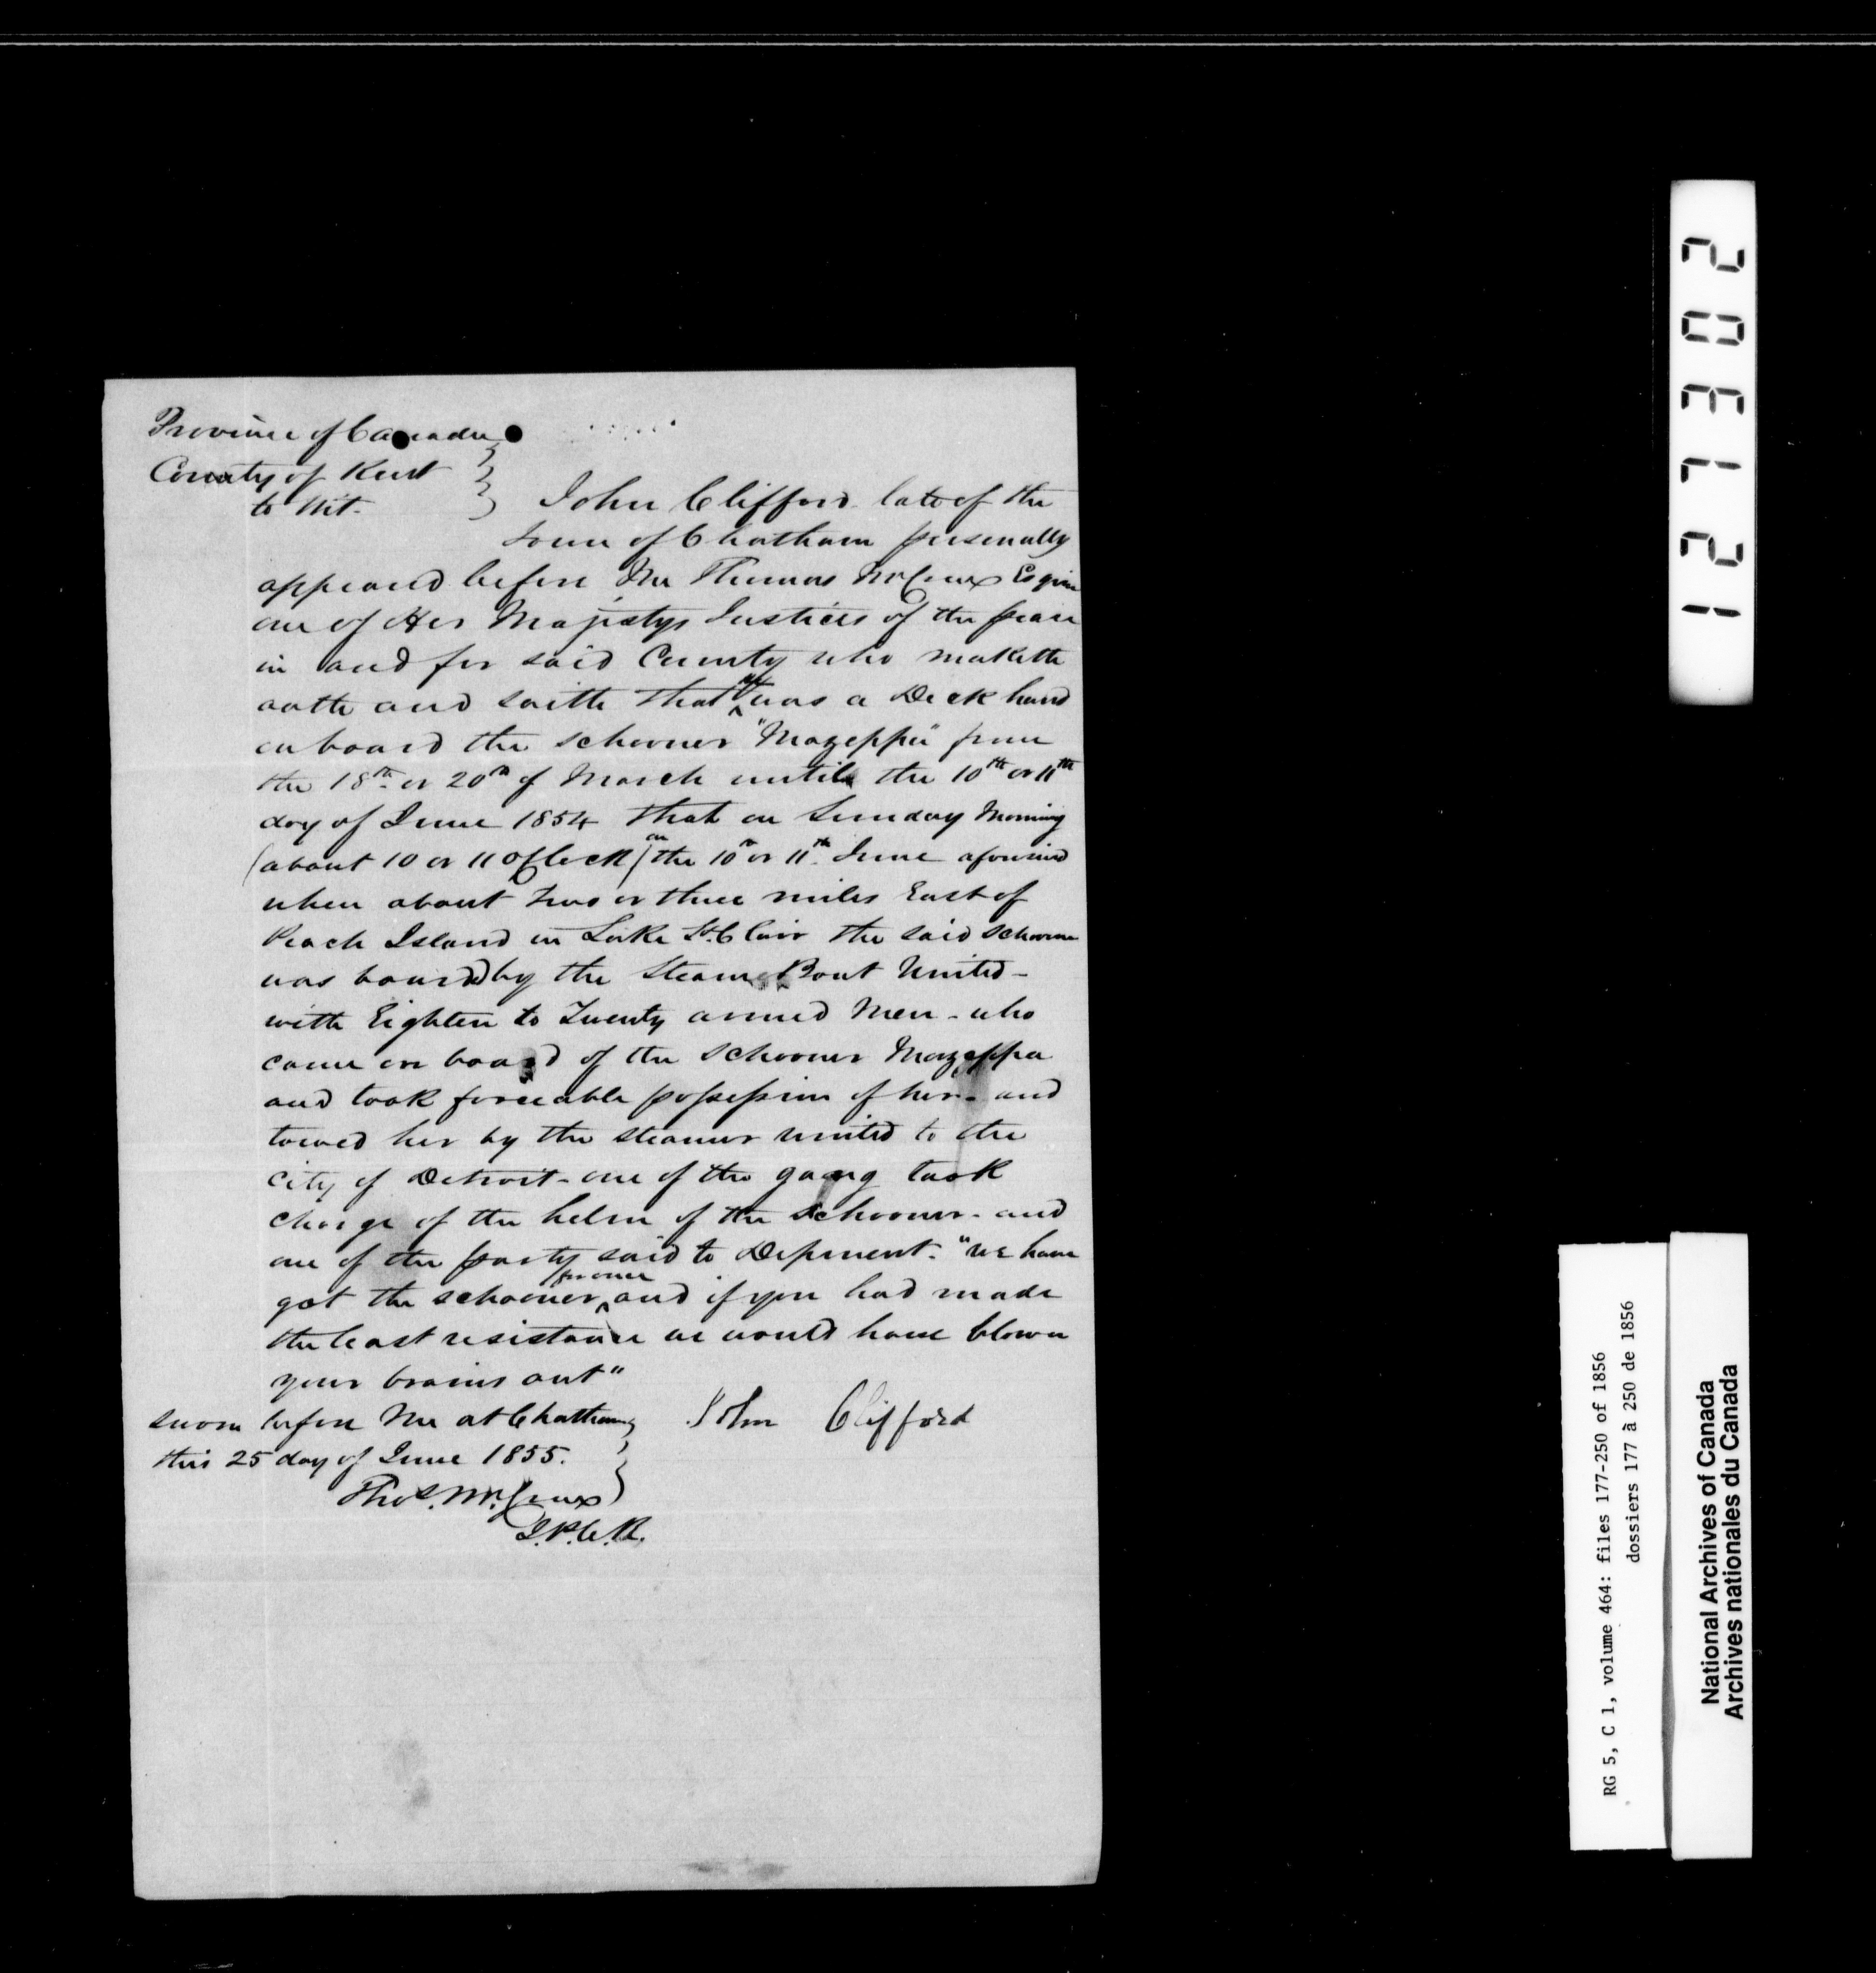 Province of Canada
County of Kent
to Wit.
John Clifford late of the
Town of Chatham personally
appeared before Me Thomas McCrae Esquire
one of Her Majestys Justices of the peace
in and for said County who maketh
oath and saith that he was a Deck hand
on board the schooner "Mazeppa" from
the 18th or 20th of March until the 10th or 11th
day of June 1854 that on Sunday Morning
(about 10 or 11 oClock) on the 10th or 11th June aforesaid
when about two or three miles East of
Peach Island in Lake St. Clair the said schooner
was boarded by the Steam Boat United -
with Eighteen to Twenty armed Men - who
came on board of the schooner Mazeppa
and took forceable possession of her - and
towed her by the steamer united to the
City of Detroit - one of the gang took
charge of the helm of the schooner - and
one of the party said to Deponent. "we have
got the schooner and if you had made
the least resistance we would have blown
your brains out"
Sworn before Me at Chatham
this 25 day of June 1855.
John Clifford
Thos. McCrae
J.P.C.K.
127302
RG 5, C 1, volume 464: files 177-250 of 1856
dossiers 177 à 250 de 1856
National Archives of Canada
Archives nationales du Canada